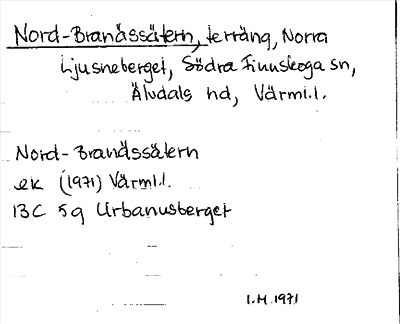 Nord-Brandssätern, terräng, Norra
Ljusneberget, Södra Finnskoga sn,
Älvdals hd, Värml.l.
Nord-Brandssätern
ek (1971) Värml.l.
13C 5g Urbanusberget
I.H. 1971